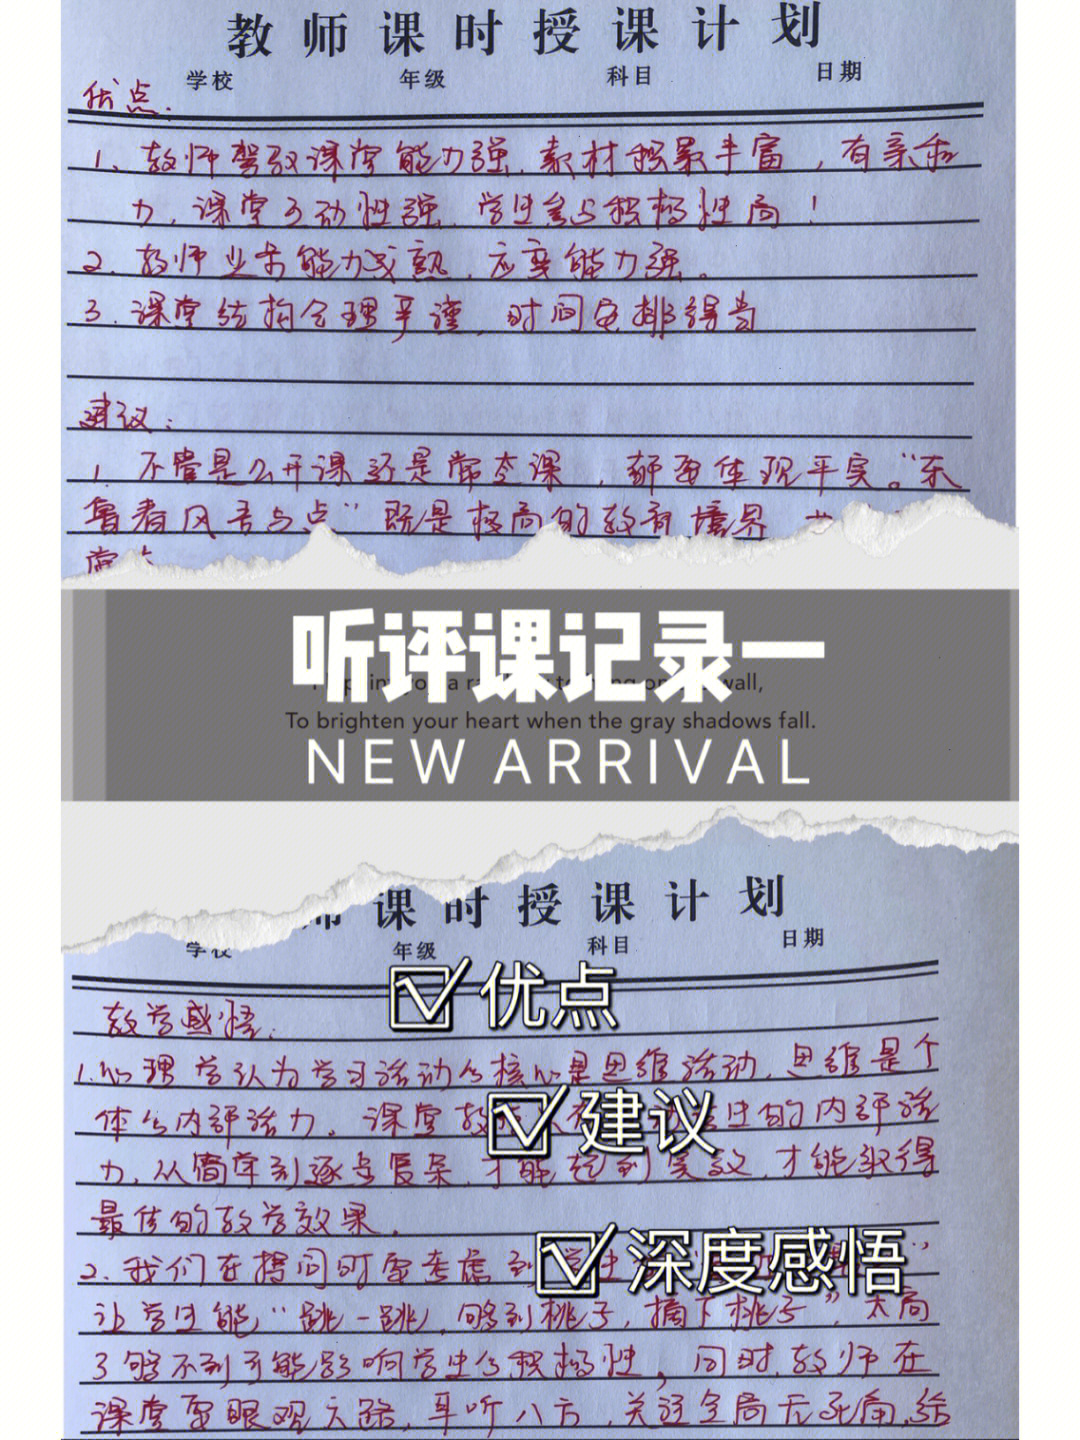 教师课时授课计划
学校 年级 科目 日期
优点:
1、教师驾驭课堂能力强,素材积累丰富,有亲和
力,课堂互动性强,学生参与积极性高!
2、教师业务能力成熟,应变能力强。
3、课堂结构合理严谨,时间安排得当
建议:
1、不管是公开课还是常态课,都要体现平实。“东
鲁春风吾与点”既是极高的教育境界
听评课记录一
wall,
To brighten your heart when the gray shadows fall.
NEW ARRIVAL
师课时授课计划
学校 年级 科目 日期
优点
教学感悟:
1、心理学认为学习活动的核心是思维活动,思维是个
体的内部活力。课堂教 生的内部活
建议
力,从简单到逐步复杂,才能起到实效,才能取得
最佳的教学效果。
2、我们在提问时要考虑到学生
深度感悟
让学生能“跳一跳,够到桃子,摘下桃子”,太高
了够不到可能影响学生的积极性,同时,教师在
课堂要眼观六路,耳听八方,关注全局无死角,给